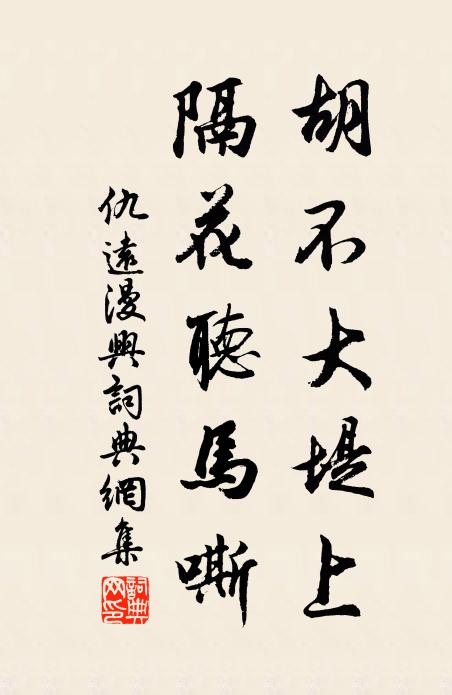 胡不大堤上
隔花聽馬嘶
仇遠漫興詞典網集
詞典网印